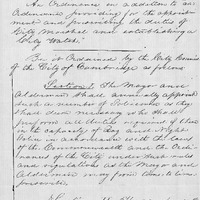 An Ordinance in addition to an
Ordinance providing for the appoint-
ment and prescribing the duties of
City Marshal and establishing a
City Watch.
Be it Ordained by the City Council
of the City of Cambridge as follows
Section 1. The Mayor and
Aldermen shall annually appoint
such a number of Policemen as they
shall deem necessary who shall
perform all duties required of them
in the capacity of Day and Night
Police in accordance with the Laws
of the Commonwealth and the Ordi-
nances of the City under such rules
and regulations as the Mayor and
Aldermen may from time to time
prescribe.